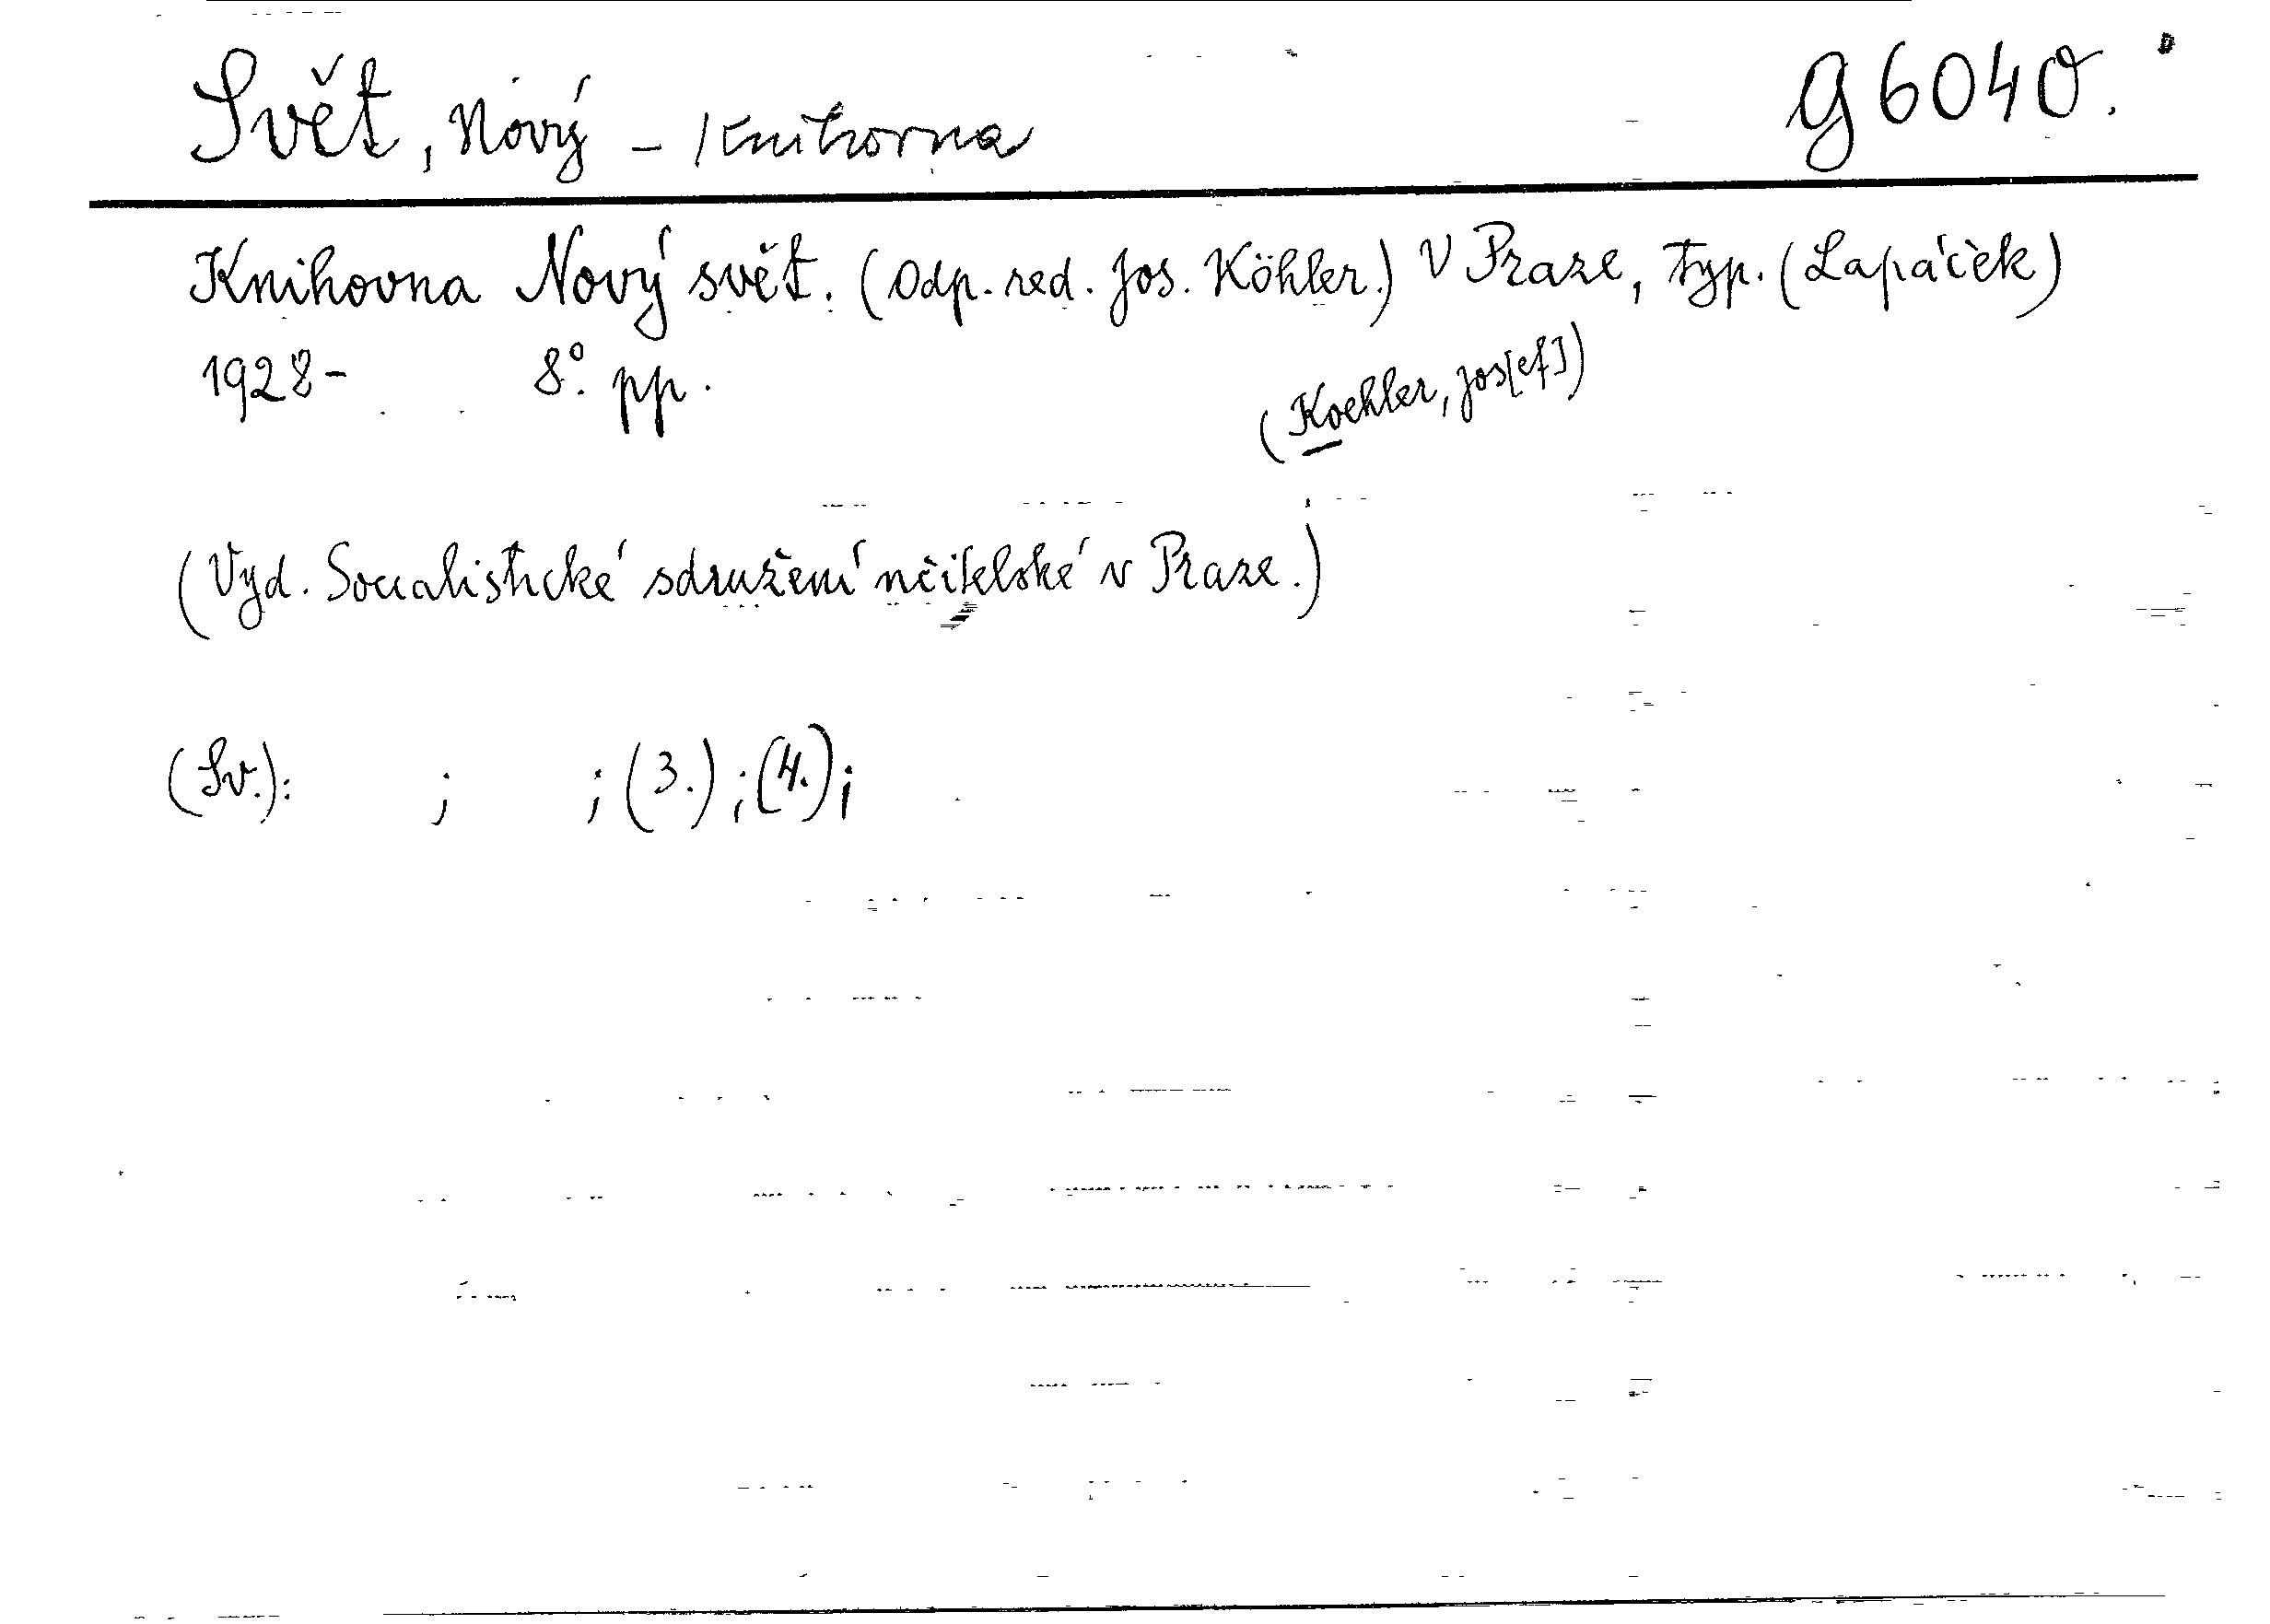 Svět, Nový – Knihovna g 6040.
Knihovna Nový svět. (Odp. red. Jos. Köhler.) V Praze, typ. (Lapáček)
1928- 8°. pp.
(Koehler, Jos[ef])
(Vyd. Socialistické sdružení učitelské v Praze.)
(Sv.): ; ; (3.) ; (4.) ;